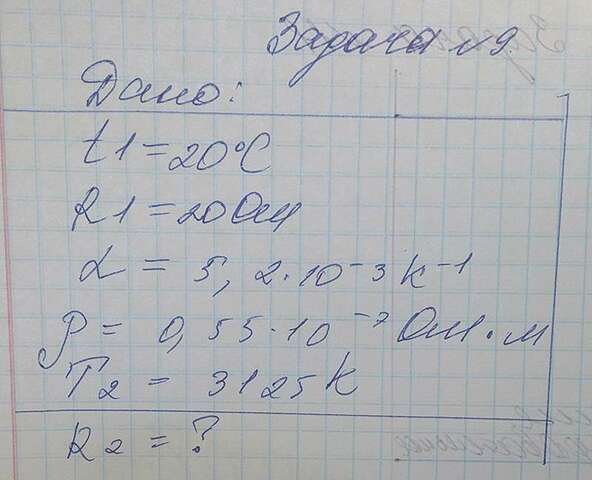 Задача № 9.
Дано:
t1 = 20°C
R1 = 20 Ом
α = 5,2·10⁻³ K⁻¹
ρ = 0,55·10⁻⁷ Ом·м
T2 = 3125K
R2 = ?